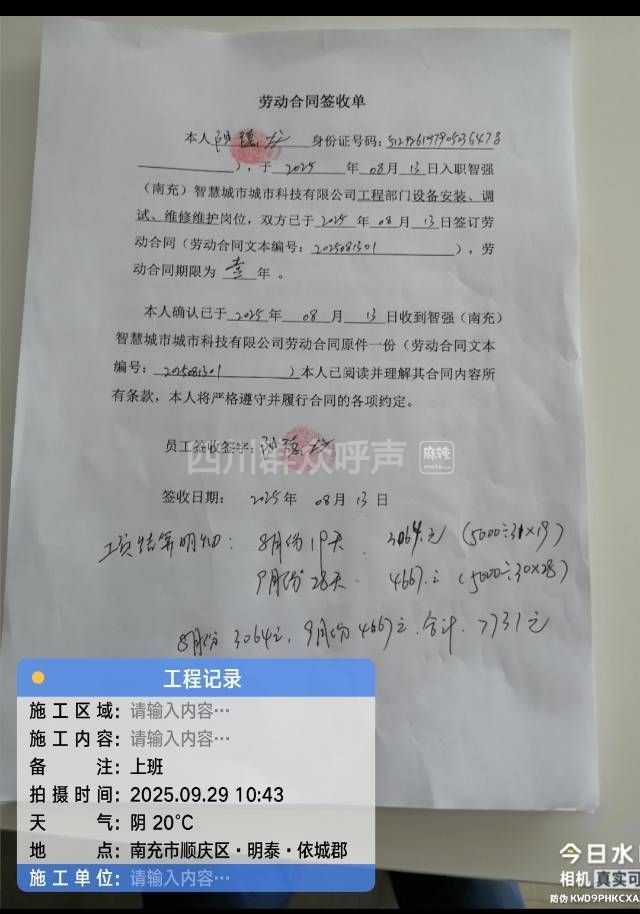 劳动合同签收单
本人 身份证号码：
），于 2025 年 08 月 13 日入职智强
（南充）智慧城市城市科技有限公司工程部门设备安装、调
试、维修维护岗位，双方已于 2025 年 08 月 13 日签订劳
动合同（劳动合同文本编号： 2025081301 ），劳
动合同期限为 壹 年 。
本人确认已于 2025 年 08 月 13 日收到智强（南充）
智慧城市城市科技有限公司劳动合同原件一份（劳动合同文本
编号： 2025081301 ）本人已阅读并理解其合同内容所
有条款，本人将严格遵守并履行合同的各项约定。
员工签收签字：
签收日期： 2025 年 08 月 13 日
结算明细： 8月份19天 3064元 (5000÷31×19)
9月份28天 4667元 (5000÷30×28)
8月份 3064元，9月份 4667元，合计 7731元
四川群众呼声 麻辣
mala.cn
工程记录
施工区域：请输入内容…
施工内容：请输入内容…
备注：上班
拍摄时间：2025.09.29 10:43
天气：阴 20℃
地点：南充市顺庆区·明泰·依城郡
施工单位：请输入内容…
今日水
相机 真实可
防伪 KWD9PHKCXA